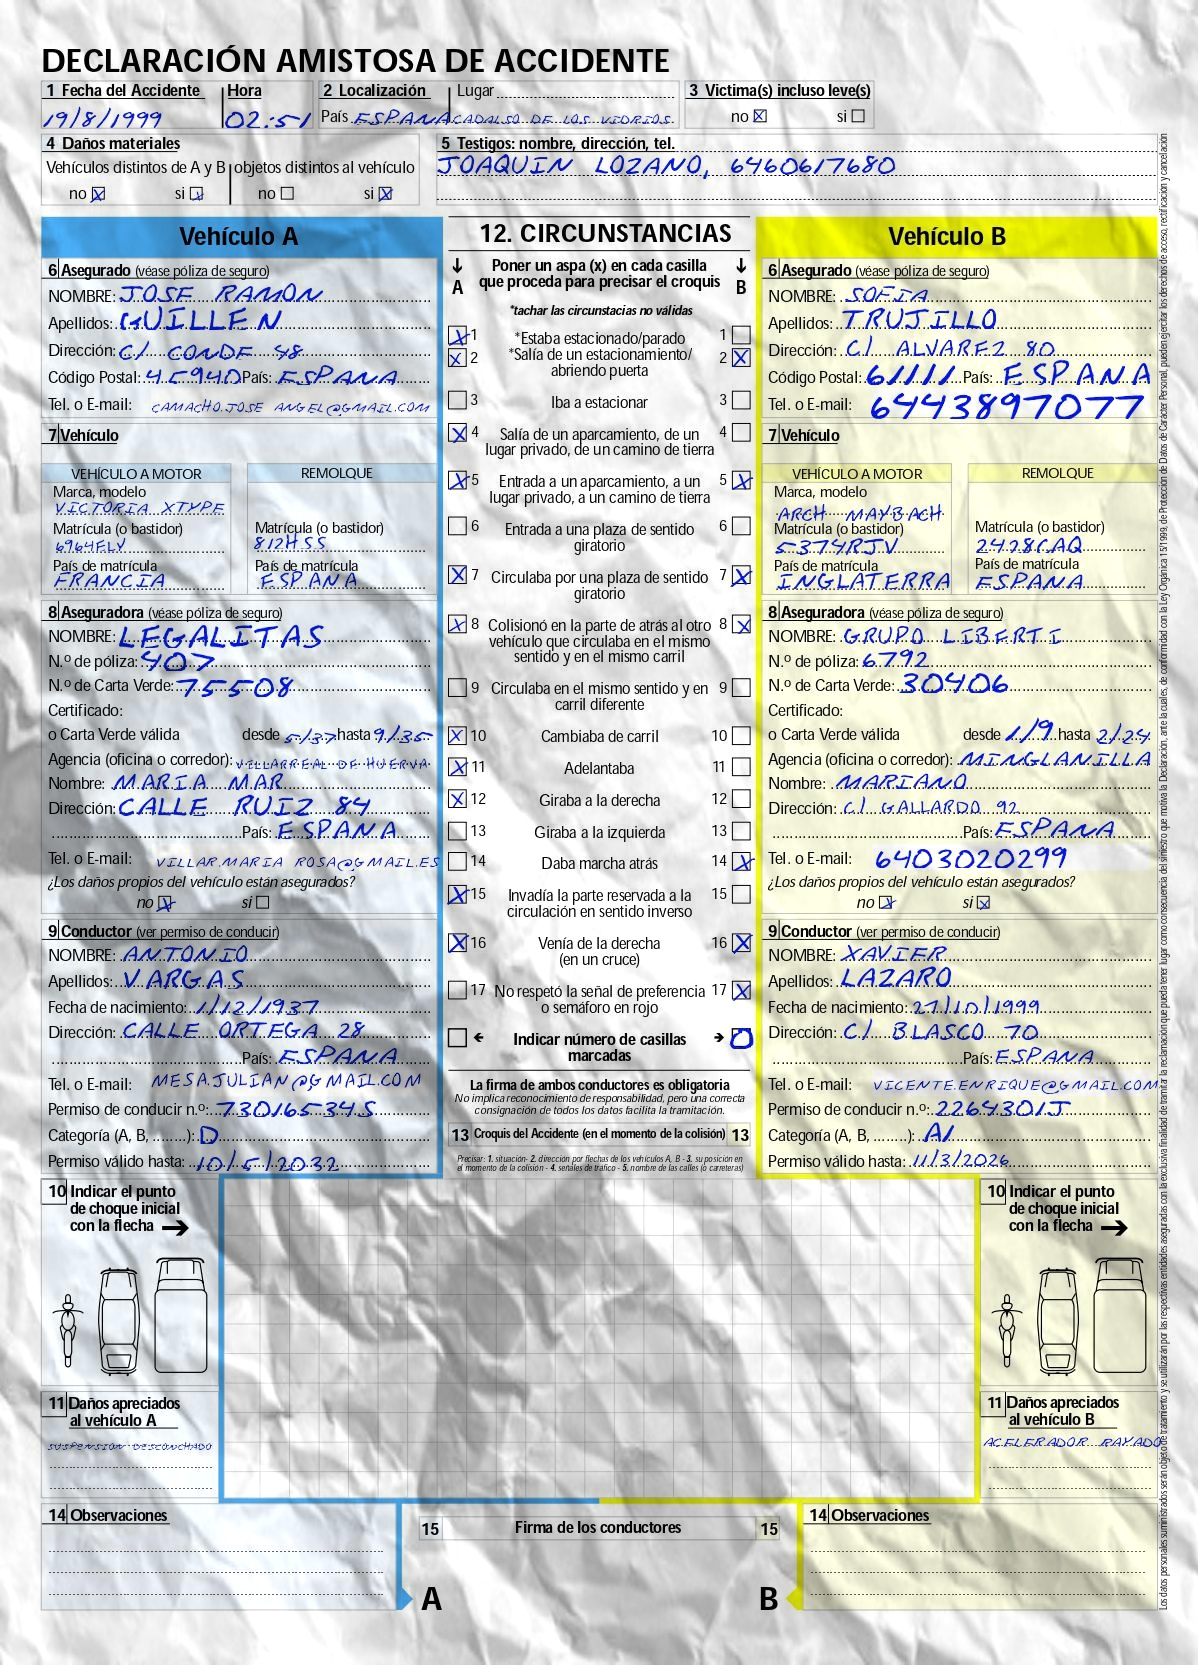 DECLARACIÓN AMISTOSA DE ACCIDENTE
1 Fecha del Accidente Hora 2 Localización Lugar 3 Victima(s) incluso leve(s)
19/8/1999 02:51 País ESPANA CADALSO DE LOS VIDRIOS no si
4 Daños materiales
Vehículos distintos de A y B objetos distintos al vehículo
no si no si
5 Testigos: nombre, dirección, tel.
JOAQUIN LOZANO, 6460617680
Vehículo A
6 Asegurado (véase póliza de seguro)
NOMBRE: JOSE RAMON
Apellidos: GUILLEN
Dirección: C/ CONDE 48
Código Postal: 45940 País: ESPANA
Tel. o E-mail: CAMACHO.JOSE ANGEL@GMAIL.COM
7 Vehículo
VEHÍCULO A MOTOR REMOLQUE
Marca, modelo
VICTORIA XTYPE
Matrícula (o bastidor) Matrícula (o bastidor)
6964FLV 812HSS
País de matrícula País de matrícula
FRANCIA ESPANA
8 Aseguradora (véase póliza de seguro)
NOMBRE: LEGALITAS
N.º de póliza: 407
N.º de Carta Verde: 75508
Certificado:
o Carta Verde válida desde 5/37 hasta 9/35
Agencia (oficina o corredor): VILLARREAL DE HUERVA
Nombre: MARIA MAR
Dirección: CALLE RUIZ 84
País: ESPANA
Tel. o E-mail: VILLAR.MARIA ROSA@GMAIL.ES
¿Los daños propios del vehículo están asegurados?
no si
9 Conductor (ver permiso de conducir)
NOMBRE: ANTONIO
Apellidos: VARGAS
Fecha de nacimiento: 1/12/1937
Dirección: CALLE ORTEGA 28
País: ESPANA
Tel. o E-mail: MESA.JULIAN@GMAIL.COM
Permiso de conducir n.º: 73016534S
Categoría (A, B, ........): D
Permiso válido hasta: 10/5/2032
12. CIRCUNSTANCIAS
A Poner un aspa (x) en cada casilla que proceda para precisar el croquis B
*tachar las circunstacias no válidas
1 *Estaba estacionado/parado 1
2 *Salía de un estacionamiento/ 2
abriendo puerta
3 Iba a estacionar 3
4 Salía de un aparcamiento, de un 4
lugar privado, de un camino de tierra
5 Entrada a un aparcamiento, a un 5
lugar privado, a un camino de tierra
6 Entrada a una plaza de sentido 6
giratorio
7 Circulaba por una plaza de sentido 7
giratorio
8 Colisionó en la parte de atrás al otro 8
vehículo que circulaba en el mismo
sentido y en el mismo carril
9 Circulaba en el mismo sentido y en 9
carril diferente
10 Cambiaba de carril 10
11 Adelantaba 11
12 Giraba a la derecha 12
13 Giraba a la izquierda 13
14 Daba marcha atrás 14
15 Invadía la parte reservada a la 15
circulación en sentido inverso
16 Venía de la derecha 16
(en un cruce)
17 No respetó la señal de preferencia 17
o semáforo en rojo
Indicar número de casillas 0
marcadas
La firma de ambos conductores es obligatoria
No implica reconocimiento de responsabilidad, pero una correcta
consignación de todos los datos facilita la tramitación.
13 Croquis del Accidente (en el momento de la colisión) 13
Precisar: 1. situación- 2. dirección por flechas de los vehículos A, B - 3. su posición en
el momento de la colisión - 4. señales de tráfico - 5. nombre de las calles (o carreteras)
Vehículo B
6 Asegurado (véase póliza de seguro)
NOMBRE: SOFIA
Apellidos: TRUJILLO
Dirección: C/ ALVAREZ 80
Código Postal: 61111 País: ESPANA
Tel. o E-mail: 6443897077
7 Vehículo
VEHÍCULO A MOTOR REMOLQUE
Marca, modelo
ARCH MAYBACH
Matrícula (o bastidor) Matrícula (o bastidor)
5374RJV 2428CAQ
País de matrícula País de matrícula
INGLATERRA ESPANA
8 Aseguradora (véase póliza de seguro)
NOMBRE: GRUPO LIBERTI
N.º de póliza: 6792
N.º de Carta Verde: 30406
Certificado:
o Carta Verde válida desde 1/9 hasta 2/24
Agencia (oficina o corredor): MINGLANILLA
Nombre: MARIANO
Dirección: C/ GALLARDO 92
País: ESPANA
Tel. o E-mail: 6403020299
¿Los daños propios del vehículo están asegurados?
no si
9 Conductor (ver permiso de conducir)
NOMBRE: XAVIER
Apellidos: LAZARO
Fecha de nacimiento: 27/10/1999
Dirección: C/ BLASCO 70
País: ESPANA
Tel. o E-mail: VICENTE.ENRIQUE@GMAIL.COM
Permiso de conducir n.º: 2264301J
Categoría (A, B, ........): A1
Permiso válido hasta: 11/3/2026
10 Indicar el punto
de choque inicial
con la flecha
11 Daños apreciados
al vehículo A
SUSPENSION DESCONCHADO
10 Indicar el punto
de choque inicial
con la flecha
11 Daños apreciados
al vehículo B
ACELERADOR RAYADO
14 Observaciones
15 Firma de los conductores 15
A B
14 Observaciones
Los datos personales suministrados serán objeto de tratamiento y se utilizarán por las respectivas entidades aseguradas con la exclusiva finalidad de tramitar la reclamación que pueda tener lugar como consecuencia del siniestro que motiva la Declaración, ante la cuales, de conformidad con la Ley Orgánica 15/1999, de Protección de Datos de Carácter Personal, pueden ejercitar los derechos de acceso, rectificación y cancelación